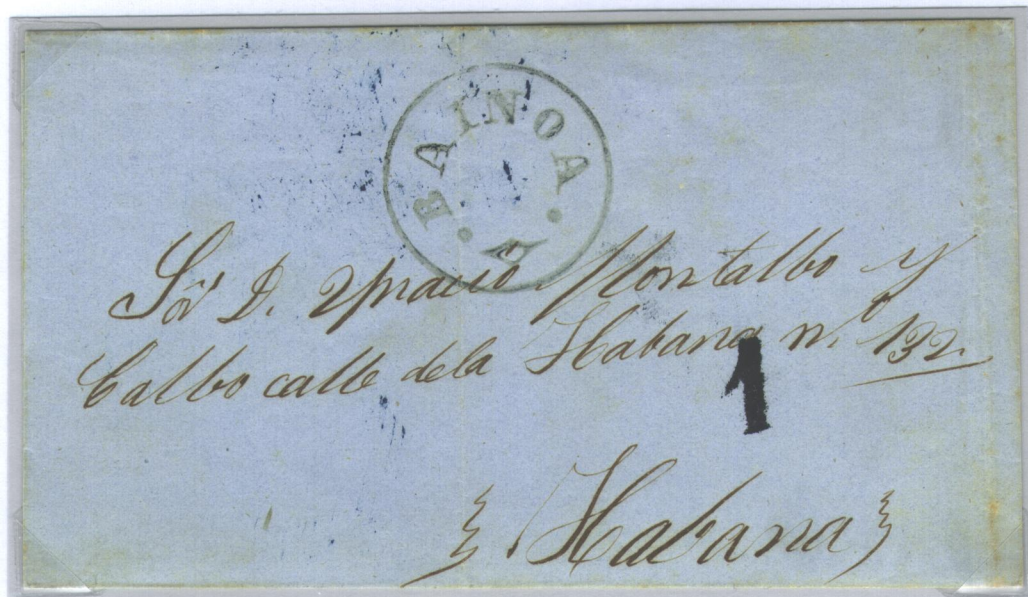 BAINOA
Sor D. Ygnacio Montalbo y
Calbo calle dela Habana n.º 132
1
Habana